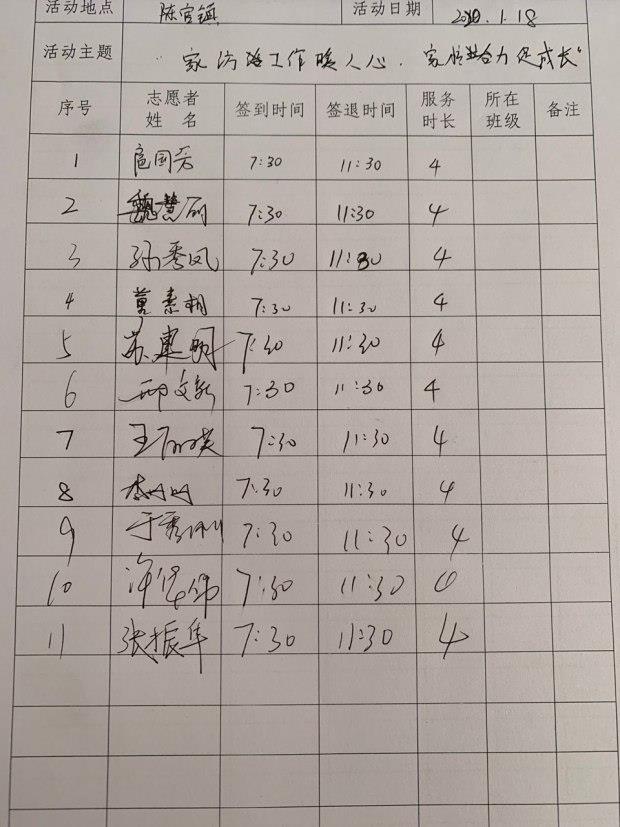 活动地点 陈官镇 活动日期 2020.1.18
活动主题 家访 工作暖人心. 家 合力促成长"
序号 志愿者姓名 签到时间 签退时间 服务时长 所在班级 备注
1 扈国芳 7:30 11:30 4
2 魏慧丽 7:30 11:30 4
3 孙秀凤 7:30 11:30 4
4 素 7:30 11:30 4
5 苏建明 7:30 11:30 4
6 邢文新 7:30 11:30 4
7 王丽英 7:30 11:30 4
8 李 7:30 11:30 4
9 于秀 7:30 11:30 4
10 7:30 11:30
11 张振华 7:30 11:30 4